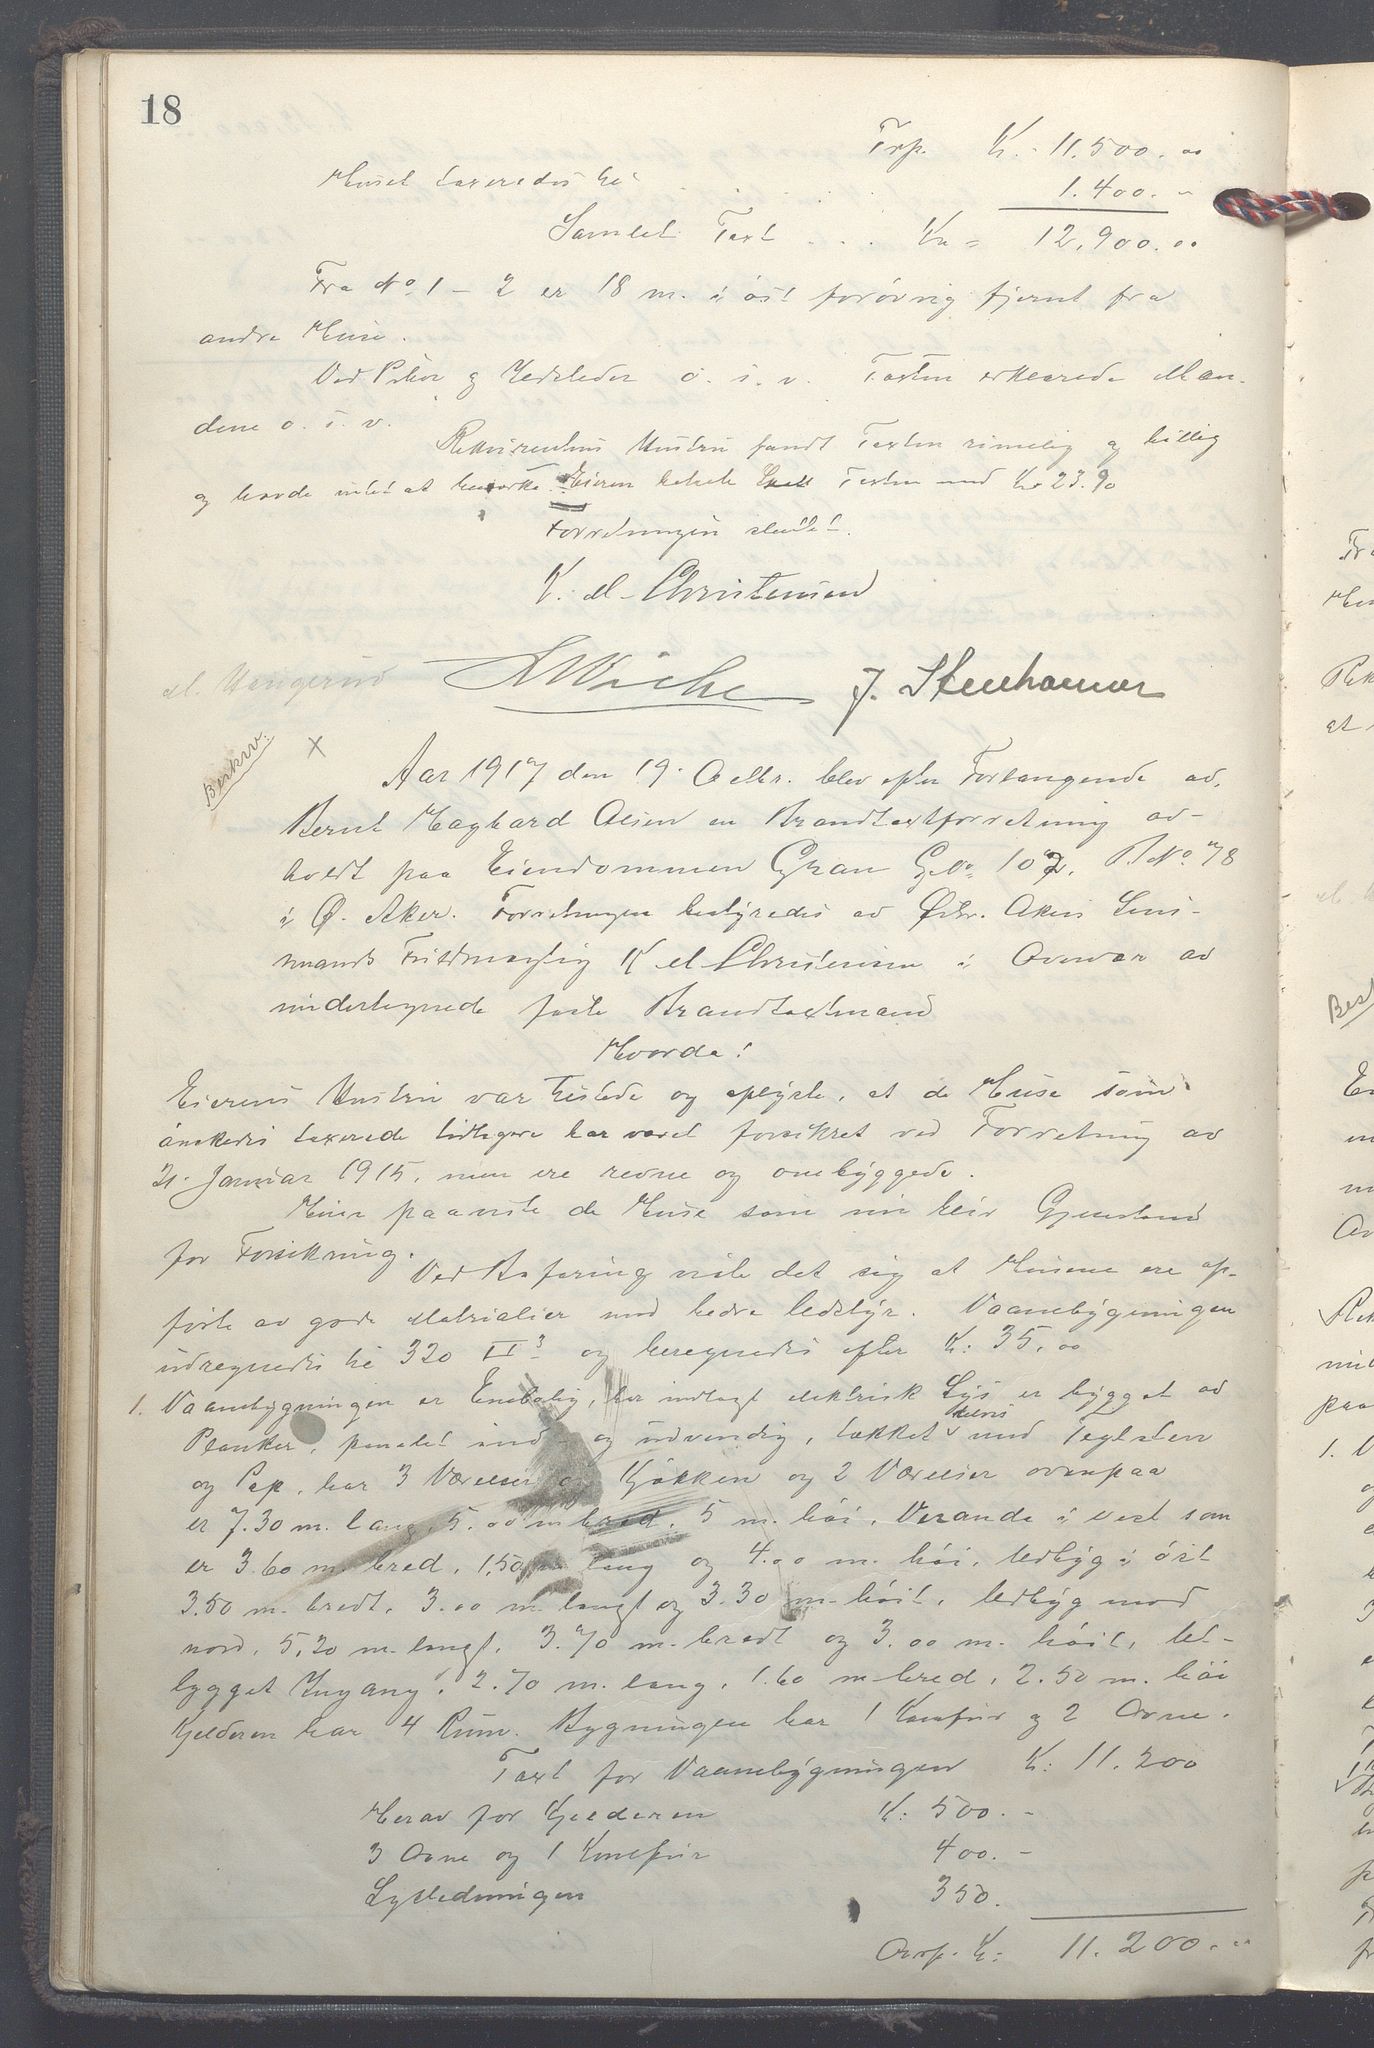 18
Trp. Kr. 11.500.00
Huset taxeredes til . . . . 1.400. -
Samlet Taxt . . . Kr = 12.900.00
Fra No 1 - 2 er 18 m. i øst forøvrig fjernt fra
andre Huse.
Ved Piber og Ildsteder o. s. v. Taxten erklærede Mæn-
dene o. s. v.
Rekvirentens Hustru fandt Taxten rimelig og billig
og havde intet at bemærke. Eieren betalte Taxten med Kr 23.90
Forretningen sluttet.
K. M. Christensen
M. Haugerud J. Stenhamar
Beskrv.
X
Aar 1917 den 19. Oktbr. blev efter Forlangende av
Bernt Haghard Olsen en Brandtaxtforretning av-
holdt paa Eiendommen Gran G.No 102. B.No 78
i Ø. Aker. Forretningen bestyredes av Østr. Akers Lens-
mands Fuldmægtig K M Christensen i Overvær av
undertegnede faste Brandtaxtmænd
Hvorda!
Eierens Hustru var tilstede og oplyste, at de Huse som
ønskedes taxerede tidligere har været forsikret ved Forretning av
21. Januar 1915, men ere revne og ombyggede.
Hun paaviste de Huse som nu blir Gjenstand
for Forsikring.
Ved Befaring viste det sig at Husene ere op-
førte av gode Materialier med bedre Udstyr. Vaanebygningen
udregnedes til 320 m3 og beregnedes efter Kr: 35.00
1. Vaanebygningen er Enebolig, har indlagt elektrisk Lys er bygget av
Planker, panelet ind og udvendig, tækket delvis med Teglsten
og Pap, har 3 Værelser og Kjøkken og 2 Værelser ovenpaa
er 7.30 m. lang, 5.00 m bred, 5 m. høi, Veranda i vest som
er 3.60 m. bred, 1.50 m lang og 4.00 m. høi, Udbyg i øst
3.50 m. bredt, 3.00 m langt og 3.30 m. høit, Udbyg mod
nord, 5.20 m. langt, 3.70 m. bredt og 3.00 m. høit, til-
bygget Ingang, 2.70 m. lang, 1.60 m bred, 2.50 m. høi
Kjelderen har 4 Rum. Bygningen har 1 Komfur og 2 Ovne.
Taxt for Vaanebygningen Kr: 11.200
Herav for Kjelderen Kr: 500. -
3 Ovne og 1 Komfur 400. -
Lysledningen 350.
Ovrf. Kr: 11.200. -